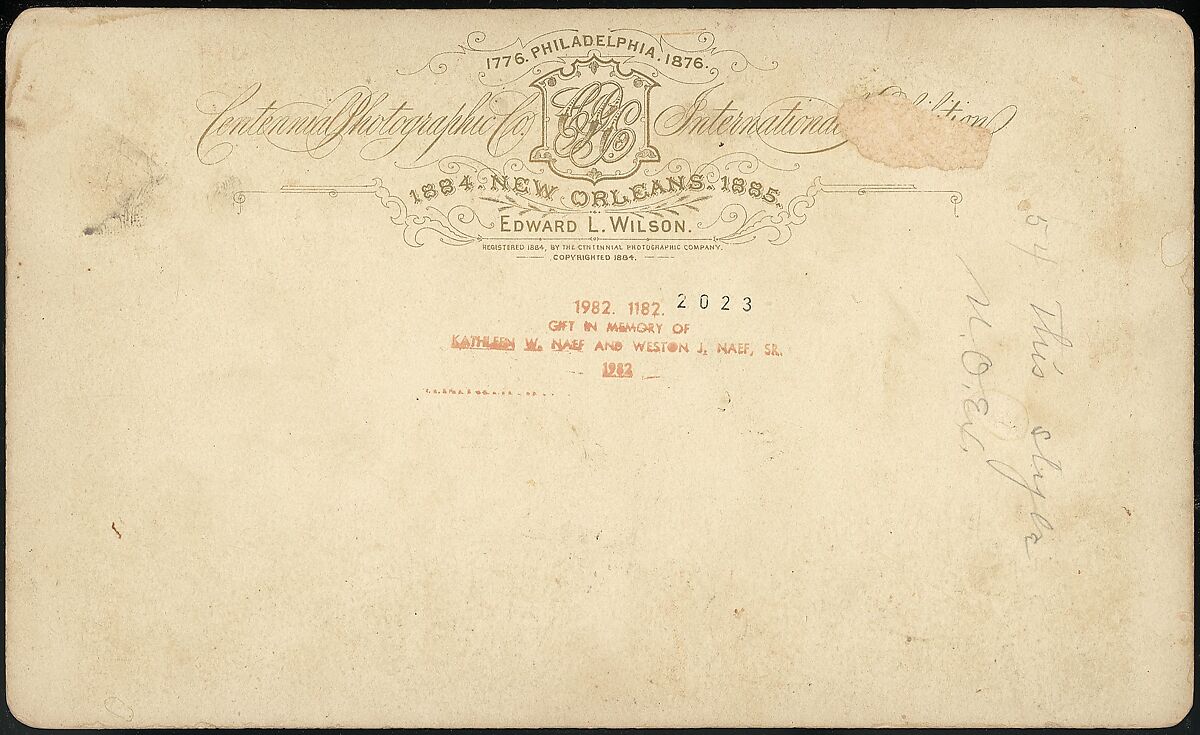 1776. PHILADELPHIA. 1876.
Centennial Photographic Co. International
1884. NEW ORLEANS. 1885.
EDWARD L. WILSON.
REGISTERED 1884, BY THE CENTENNIAL PHOTOGRAPHIC COMPANY.
COPYRIGHTED 1884.
1982. 1182. 2023
GIFT IN MEMORY OF
KATHLEEN W. NAEF AND WESTON J. NAEF, SR.
1982
54 This style
N.O. Ex.